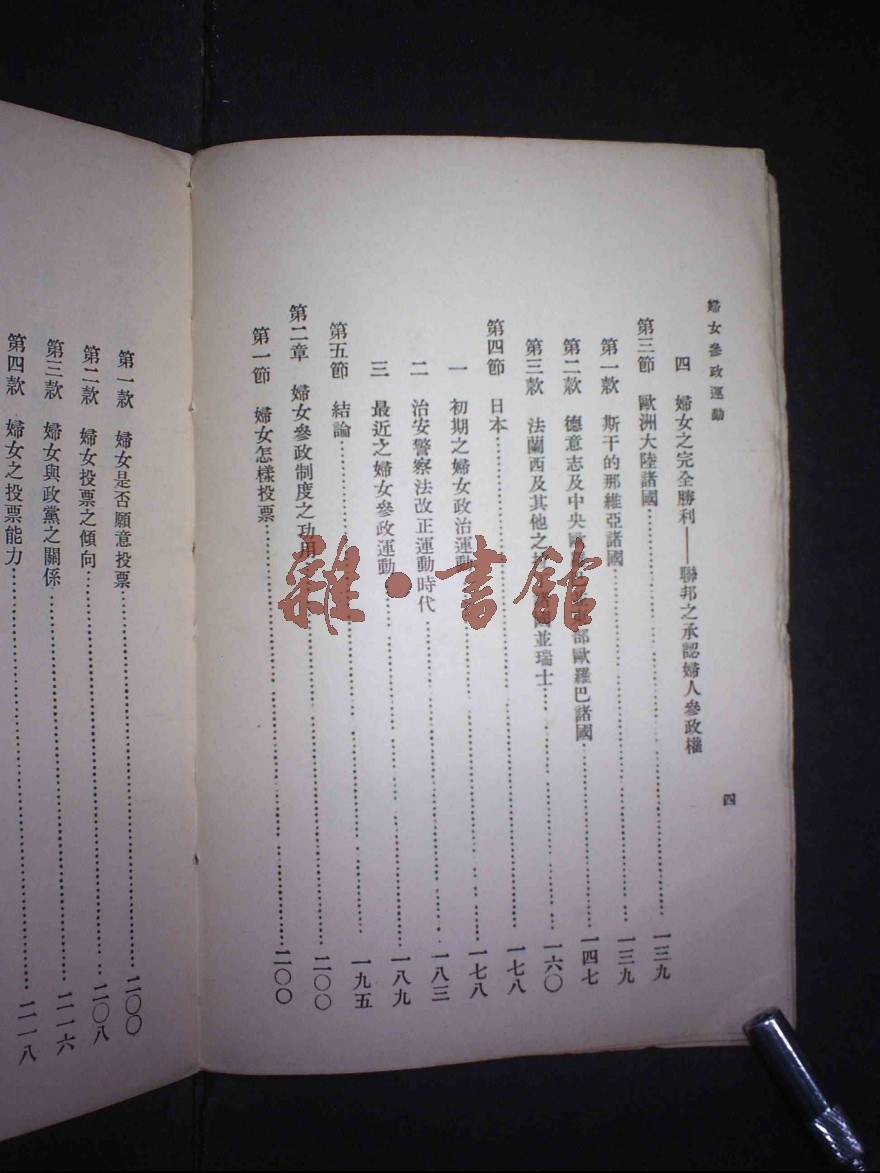 婦女參政運動
四
四 婦女之完全勝利——聯邦之承認婦人參政權
第三節 歐洲大陸諸國……一三九
第一款 斯干的那維亞諸國……一三九
第二款 德意志及中央歐 部歐羅巴諸國……一四七
第三款 法蘭西及其他之 國並瑞士……一六〇
第四節 日本……一七八
一 初期之婦女政治運動……一七八
二 治安警察法改正運動時代……一八三
三 最近之婦女參政運動……一八九
第五節 結論……一九五
第二章 婦女參政制度之功用……二〇〇
第一節 婦女怎樣投票……二〇〇
第一款 婦女是否願意投票……二〇〇
第二款 婦女投票之傾向……二〇八
第三款 婦女與政黨之關係……二一六
第四款 婦女之投票能力……二一八
雜·書館